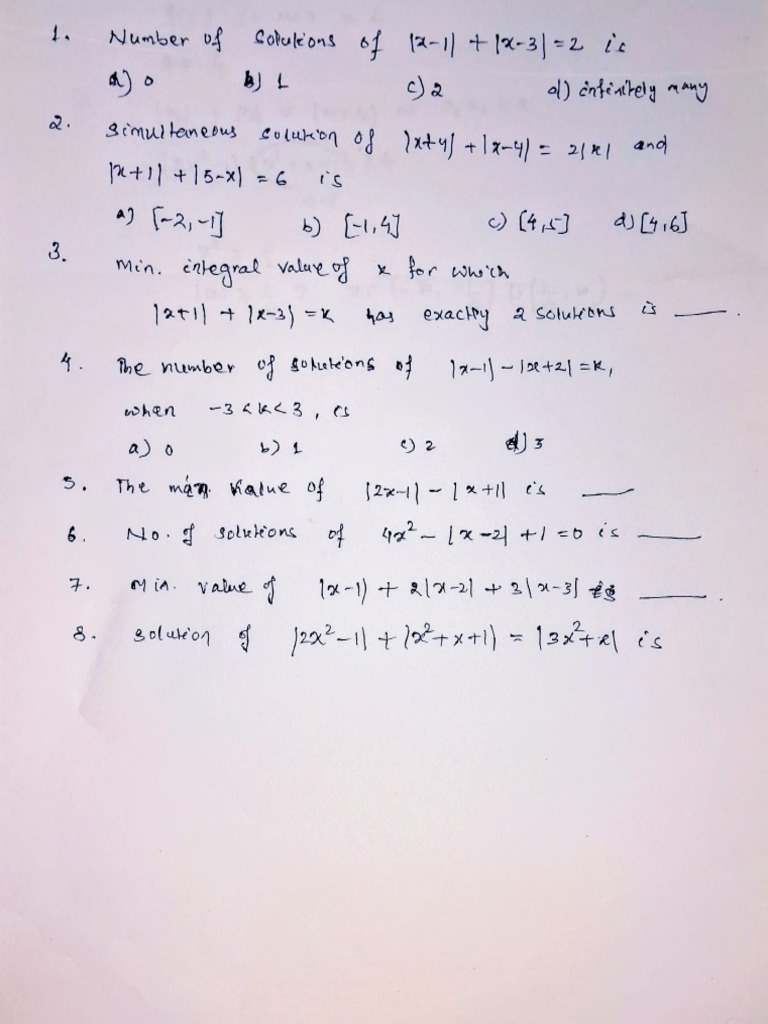 1. Number of solutions of |x-1| + |x-3| = 2 is
a) 0 b) 1 c) 2 d) infinitely many
2. Simultaneous solution of |x+4| + |x-4| = 2|x| and
|x+1| + |5-x| = 6 is
a) [-2,-1] b) [-1,4] c) [4,5] d) [4,6]
3. Min. integral value of k for which
|x+1| + |x-3| = k has exactly 2 solutions is ___.
4. The number of solutions of |x-1| - |x+2| = k,
when -3 < k < 3, is
a) 0 b) 1 c) 2 d) 3
5. The value of |2x-1| - |x+1| is ___
6. No. of solutions of 4x² - |x-2| + 1 = 0 is ___
7. Min. value of |x-1| + 2|x-2| + 3|x-3| is ___.
8. Solution of |2x²-1| + |x²+x+1| = |3x²+x| is